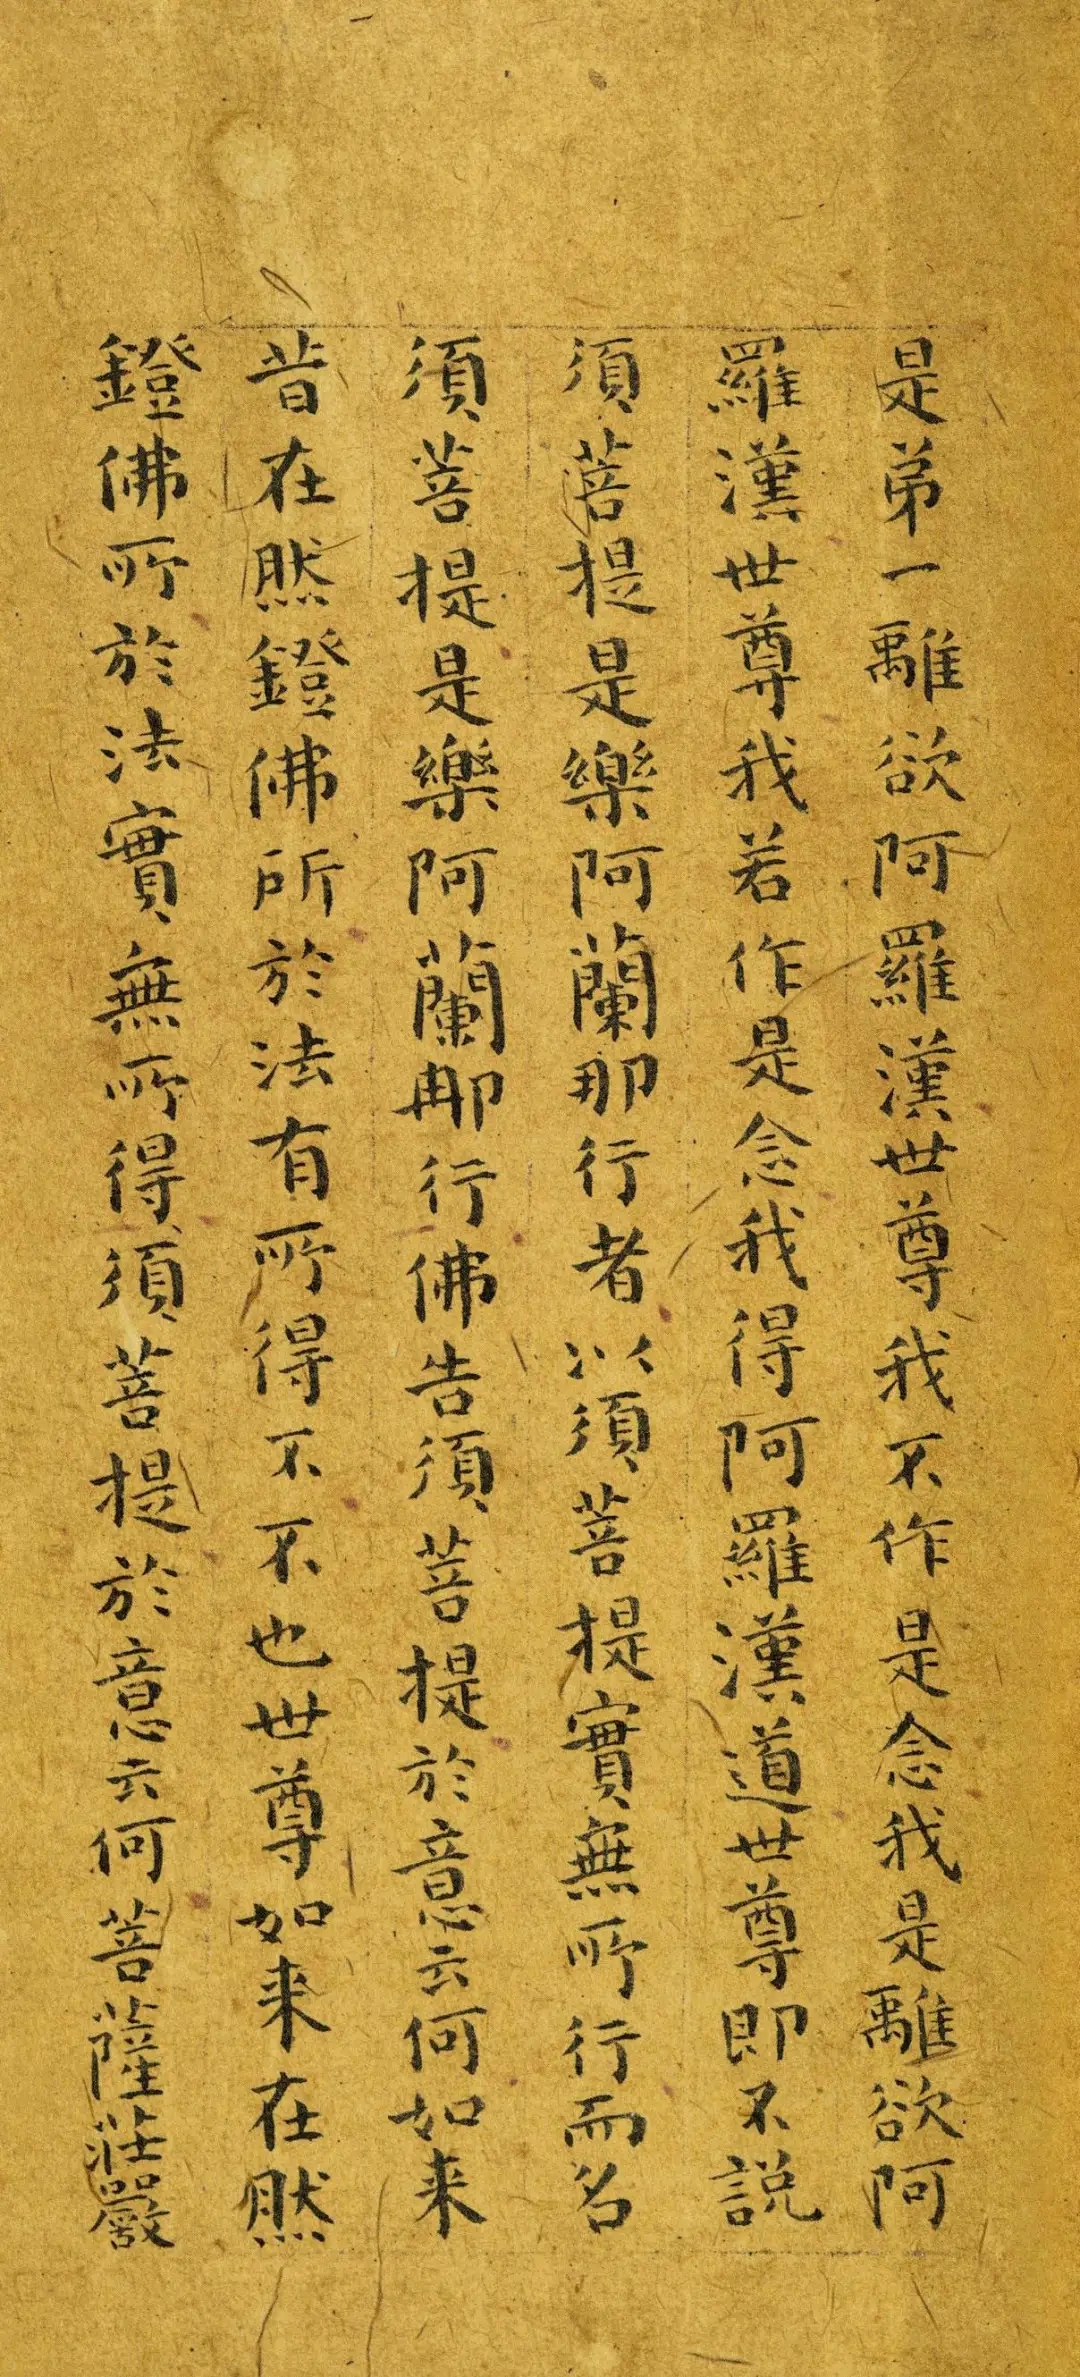 是苐一離欲阿羅漢世尊我不作是念我是離欲阿
羅漢世尊我若作是念我得阿羅漢道世尊即不説
須菩提是樂阿蘭那行者以須菩提實無所行而名
須菩提是樂阿蘭那行佛告須菩提於意云何如来
昔在然鐙佛所於法有所得不不也世尊如来在然
鐙佛所於法實無所得須菩提於意云何菩薩莊嚴